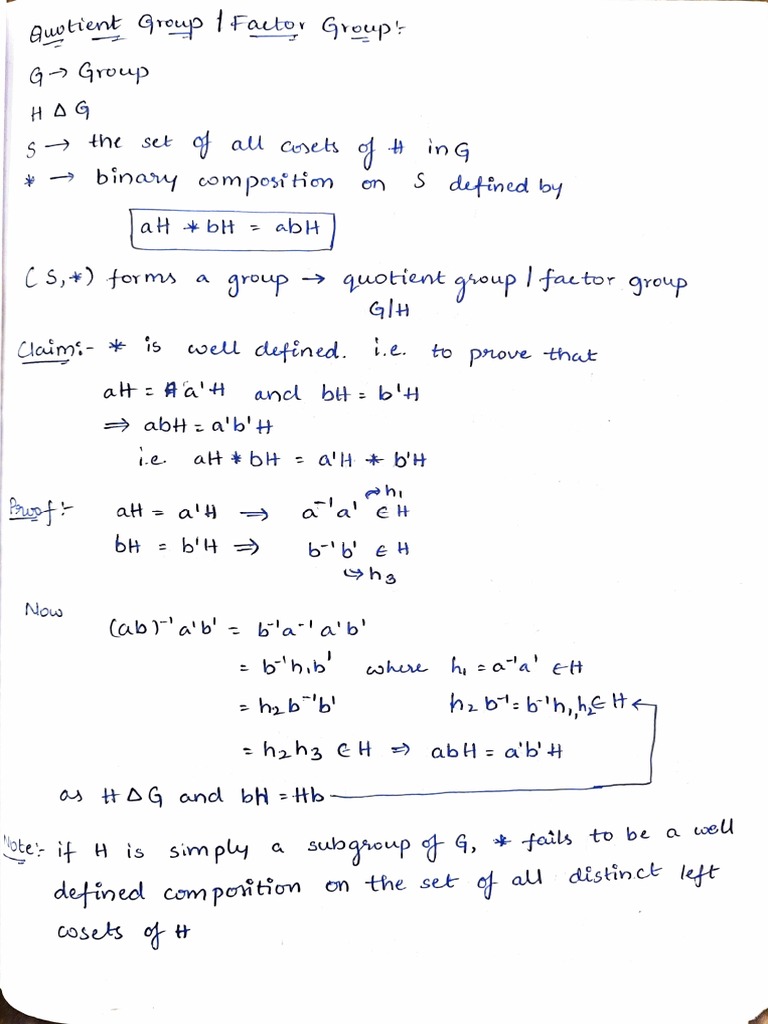 Quotient Group / Factor Group:-
G → Group
H Δ G
S → the set of all cosets of H in G
* → binary composition on S defined by
aH * bH = abH
(S,*) forms a group → quotient group / factor group
G/H
Claim:- * is well defined. i.e. to prove that
aH = a'H and bH = b'H
⇒ abH = a'b'H
i.e. aH * bH = a'H * b'H
Proof:- aH = a'H ⇒ a⁻¹a' ∈ H → h₁
bH = b'H ⇒ b⁻¹b' ∈ H
↪ h₃
Now
(ab)⁻¹a'b' = b⁻¹a⁻¹a'b'
= b⁻¹h₁b' where h₁ = a⁻¹a' ∈ H
= h₂b⁻¹b' h₂b⁻¹ = b⁻¹h₁, h₂ ∈ H ←
= h₂h₃ ∈ H ⇒ abH = a'b'H
as H Δ G and bH = Hb
Note:- if H is simply a subgroup of G, * fails to be a well
defined composition on the set of all distinct left
cosets of H